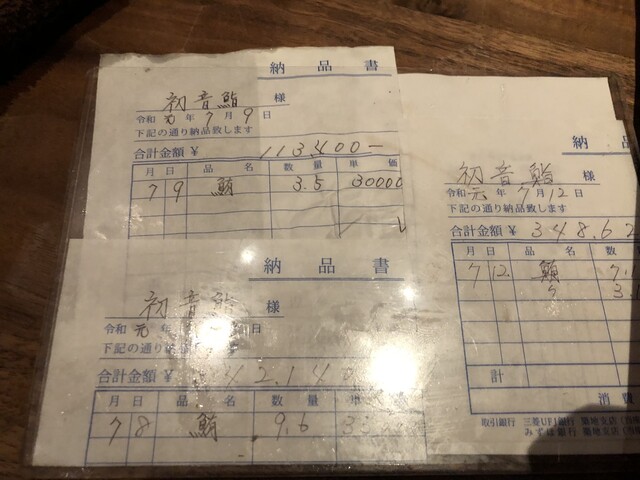 納品書
初音鮨 様
令和 元 年 7 月 9 日
下記の通り納品致します
合計金額 ¥ 113,400-
月 日 品名 数量 単価
7 9 鮪 3.5 30000
納品書
初音鮨 様
令和 元 年 日
下記の通り納
合計金額 ¥ 42,140
月 日 品名 数量 単
7 8 鮪 9.6
納品
初音鮨 様
令和 元 年 7 月 12 日
下記の通り納品致します
合計金額 ¥ 348,62
月 日 品名 数
7 12 鮪 7.
〃 3
計
消費
取引銀行 三菱UFJ銀行 築地支店
みずほ銀行 築地支店